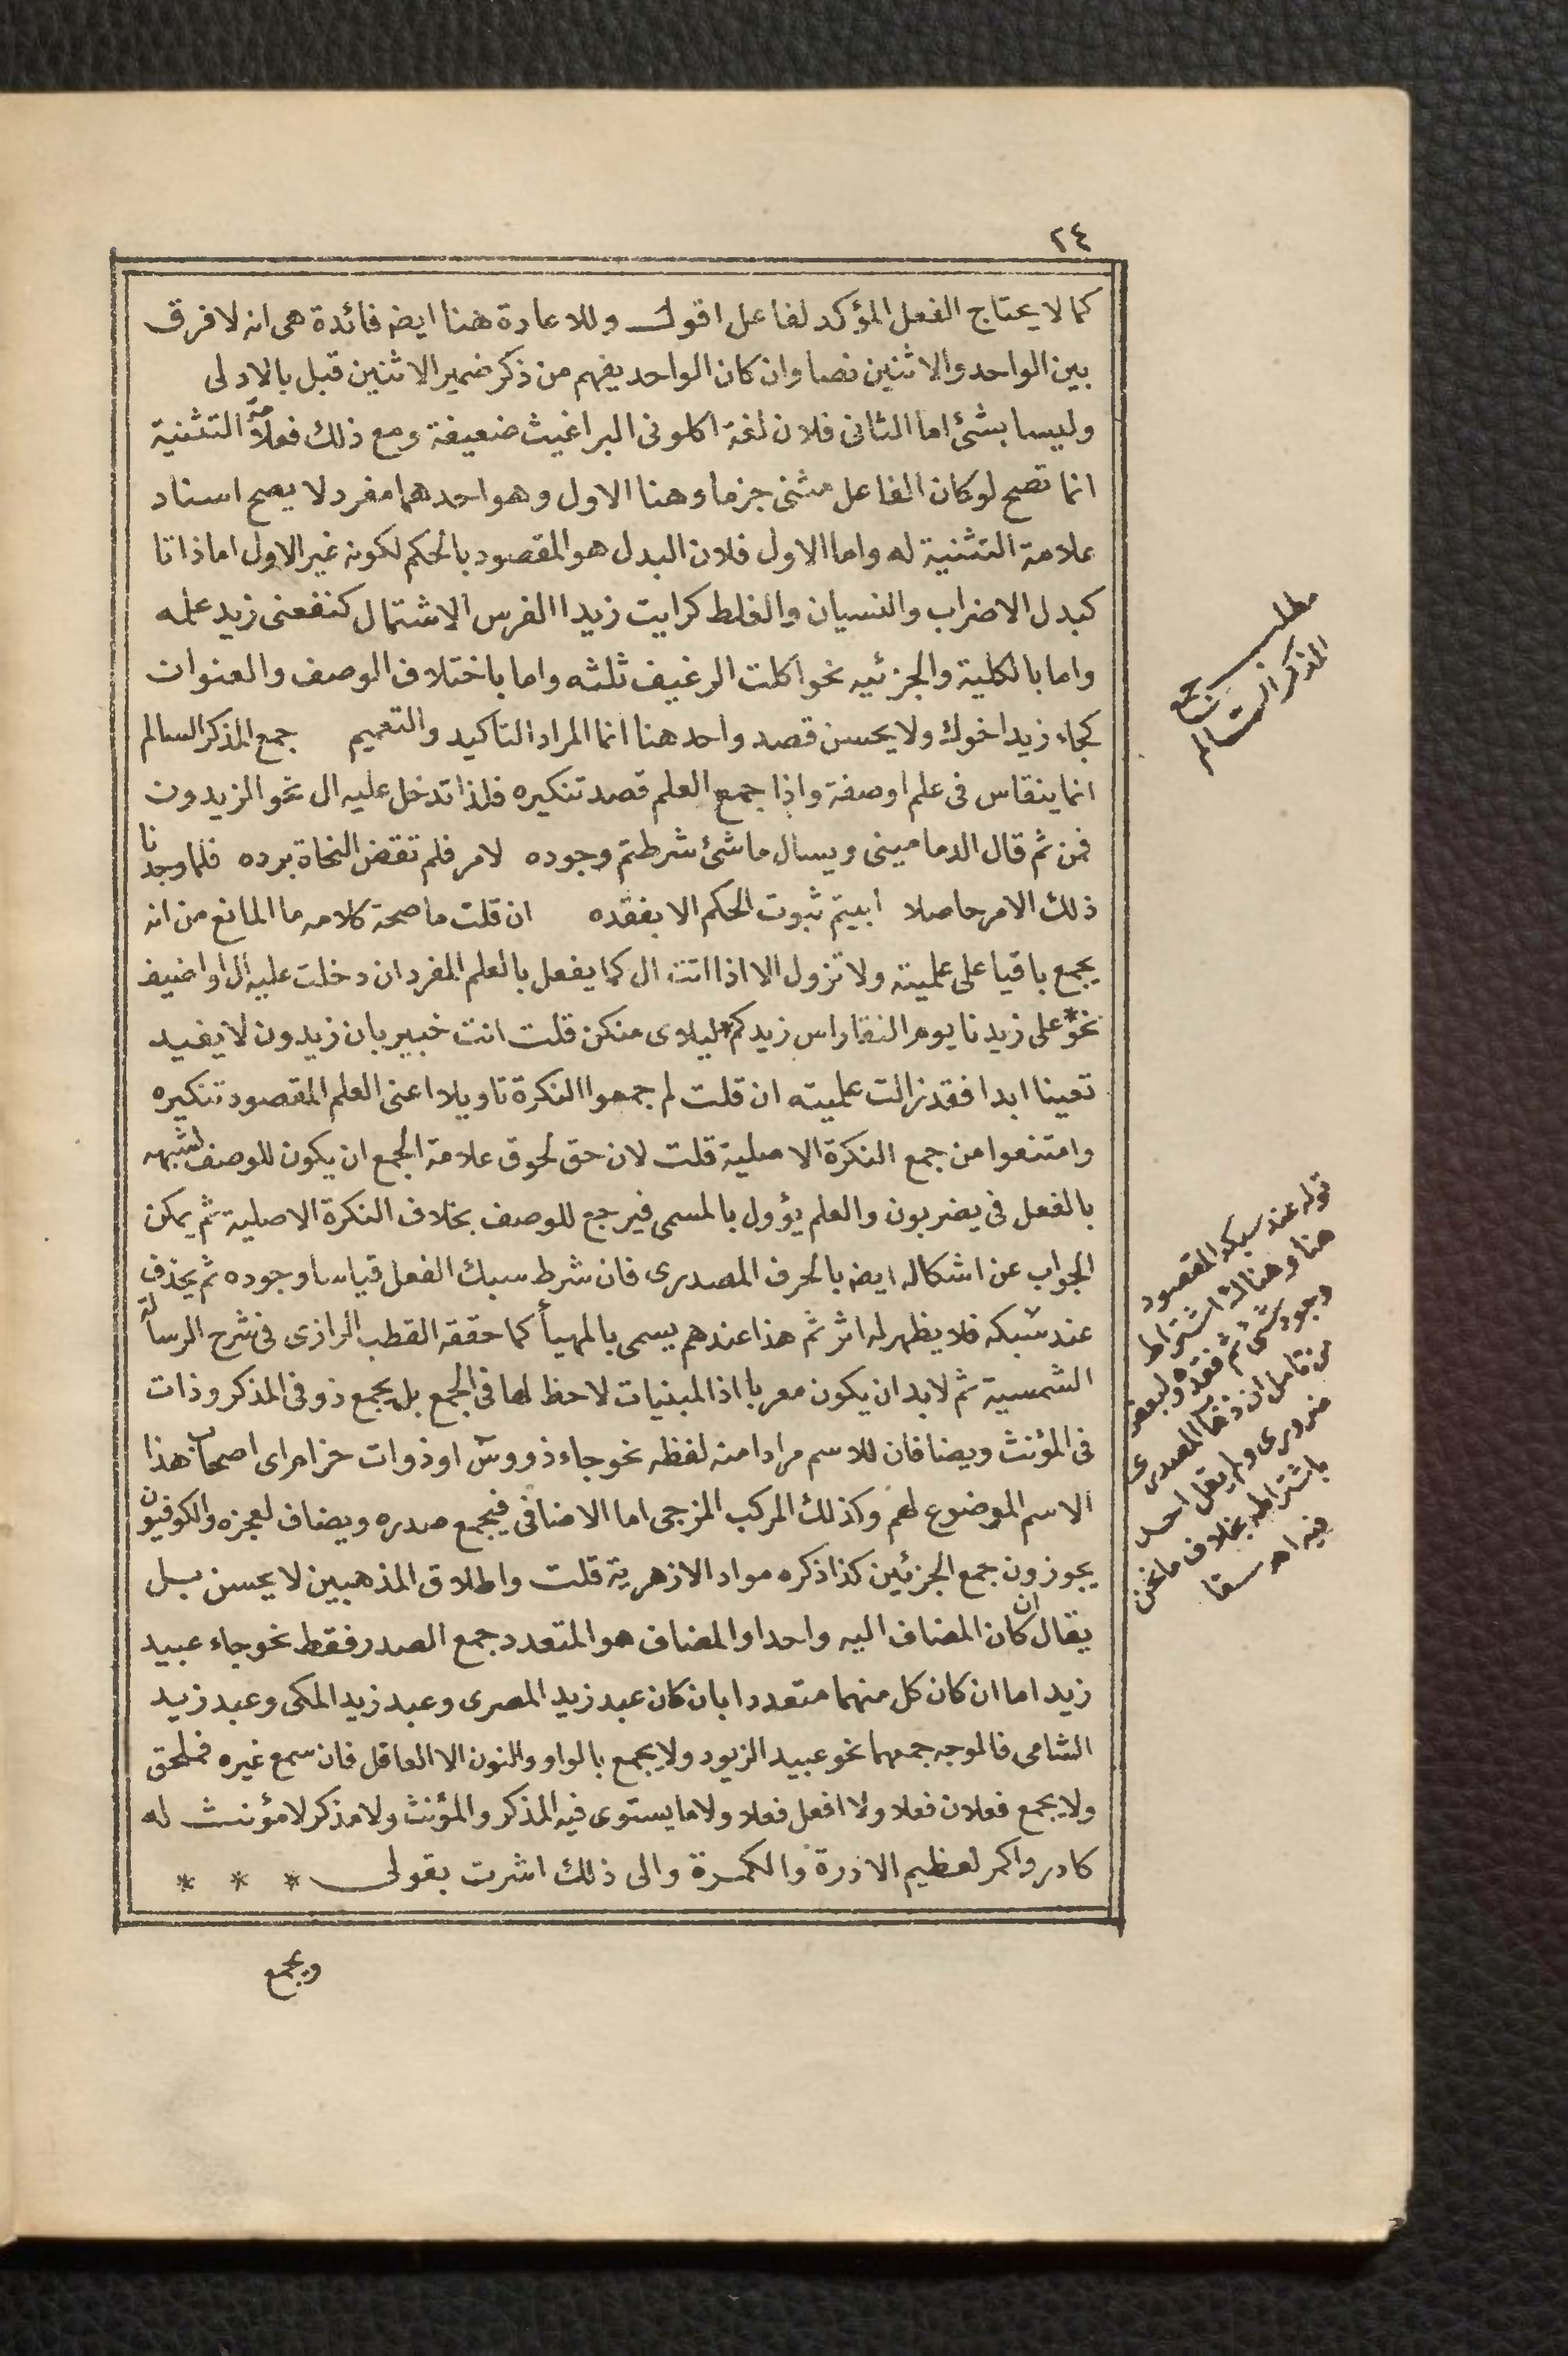 ٢٤
كما لا يحتاج الفعل المؤكد لفاعل اقول وللاعادة هنا ايضه فائدة هى انه لا فرق
بين الواحد والاثنين نصا وان كان الواحد يفهم من ذكر ضمير الاثنين قبل بالاولى
وليسا بشئ اما الثانى فلان لغة اكلونى البراغيث ضعيفة ومع ذلك فعلامة التثنية
انما تصح لو كان الفاعل مثنى جزما وهنا الاول وهو احدهما مفرد لا يصح اسناد
علامة التثنية له واما الاول فلان البدل هو المقصود بالحكم لكونه غير الاول اما ذاتا
كبدل الاضراب والنسيان والغلط كرايت زيدا الفرس الاشتمال كنفعنى زيد علمه
واما بالكلية والجزئيه نحو اكلت الرغيف ثلثه واما باختلاف الوصف والعنوان
كجاء زيد اخوك ولا يحسن قصد واحد هنا انما المراد التاكيد والتعميم جمع المذكر السالم
انما ينقاس فى علم او صفة واذا جمع العلم قصد تنكيره فلذا تدخل عليه ال نحو الزيدون
فمن ثم قال الدمامينى ويسال ما شئ شرطتم وجوده لامر فلم تقض النحاة برده فلما وجدنا
ذلك الامر حاصلا ابيتم ثبوت الحكم الا بفقده ان قلت ما صحة كلامه ما المانع من انه
يجمع باقيا على علميته ولا تزول الا اذا اتت ال كما يفعل بالعلم المفرد ان دخلت عليه ال او اضيف
نحو * على زيدنا يوم النقا راس زيدكم * ليلاى منكن قلت انت خبير بان زيدون لا يفيد
تعينا ابدا فقد زالت علميته ان قلت لم جمعوا النكرة تاويلا اعنى العلم المقصود تنكيره
وامتنعوا من جمع النكرة الاصلية قلت لان حق لحوق علامة الجمع ان يكون للوصف لشبهه
بالفعل فى يضربون والعلم يؤول بالمسمى فيرجع للوصف بخلاف النكرة الاصلية ثم يمكن
الجواب عن اشكاله ايضه بالحرف المصدرى فان شرط سبك الفعل قياسا وجوده ثم يحذف
عند سبكه فلا يظهر له اثر ثم هذا عندهم يسمى بالمهيأ كما حققه القطب الرازى فى شرح الرسالة
الشمسية ثم لابد ان يكون معربا اذ المبنيات لاحظ لها فى الجمع بل يجمع ذو فى المذكر وذات
فى المؤنث ويضافان للاسم مرادا منه لفظه نحو جاء ذووش او ذوات حزام اى اصحاب هذا
الاسم الموضوع لهم وكذلك المركب المزجى اما الاضافى فيجمع صدره ويضاف لعجزه والكوفيون
يجوزون جمع الجزئين كذا ذكره مواد الازهرية قلت واطلاق المذهبين لا يحسن بل
يقال ان كان المضاف اليه واحدا والمضاف هو المتعدد جمع الصدر فقط نحو جاء عبيد
زيد اما ان كان كل منهما متعددا بان كان عبد زيد المصرى وعبد زيد المكى وعبد زيد
الشامى فالموجه جمعهما نحو عبيد الزيود ولا يجمع بالواو والنون الا العاقل فان سمع غيره فملحق
ولا يجمع فعلان فعلا ولا افعل فعلا ولا ما يستوى فيه المذكر والمؤنث ولا مذكر لا مؤنث له
كادر واكمر لعظيم الادرة والكمرة والى ذلك اشرت بقولى * * *
ويجمع
مطلب جمع
المذكر السالم
قوله عند سبكه المقصود
هنا وهناك اشتراط
وجود شئ ثم فقده ولبعض
من تامل ان
ضرورى ولم يقل احد
باشتراطه بخلاف ما نحن
فيه اهـ سقا